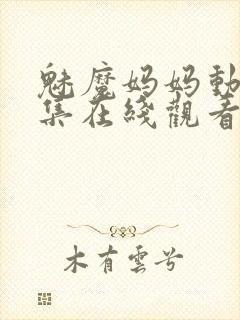 魅魔妈妈動
集在綫觀看
木有雲兮